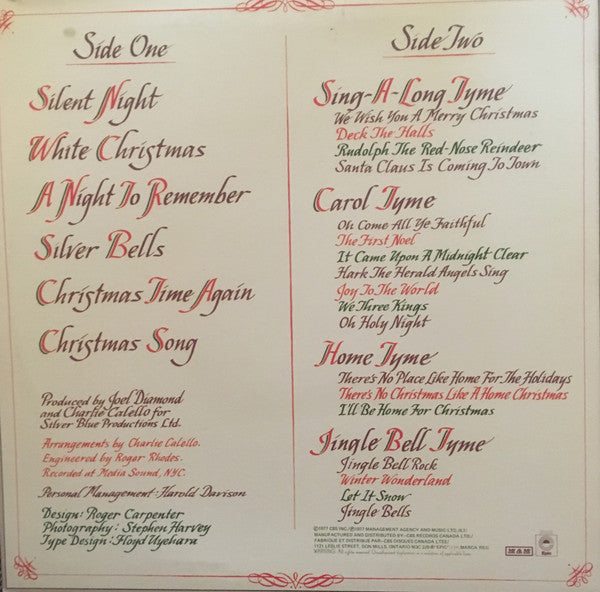 Side One
Silent Night
White Christmas
A Night To Remember
Silver Bells
Christmas Time Again
Christmas Song
Produced by Joel Diamond
and Charlie Calello for
Silver Blue Productions Ltd.
Arrangements by Charlie Calello.
Engineered by Rogar Rhodes.
Recorded at Media Sound, NYC.
Personal Management: Harold Davison
Design: Roger Carpenter
Photography: Stephen Harvey
Type Design: Floyd Uyehara
Side Two
Sing-A-Long Tyme
We Wish You A Merry Christmas
Deck The Halls
Rudolph The Red-Nose Reindeer
Santa Claus Is Coming To Town
Carol Tyme
Oh Come All Ye Faithful
The First Noel
It Came Upon A Midnight Clear
Hark The Herald Angels Sing
Joy To The World
We Three Kings
Oh Holy Night
Home Tyme
There's No Place Like Home For The Holidays
There's No Christmas Like A Home Christmas
I'll Be Home For Christmas
Jingle Bell Tyme
Jingle Bell Rock
Winter Wonderland
Let It Snow
Jingle Bells
©1977 CBS INC./℗1977 MANAGEMENT AGENCY AND MUSIC LTD.
MANUFACTURED AND DISTRIBUTED BY CBS RECORDS CANADA LTD./
FABRIQUE ET DISTRIBUE PAR CBS DISQUES CANADA LTEE/
1121 LESLIE STREET, DON MILLS, ONTARIO M3C 2J9/® "EPIC" MARCA. REG
WARNING: All rights reserved. Unauthorized
MAM
Epic